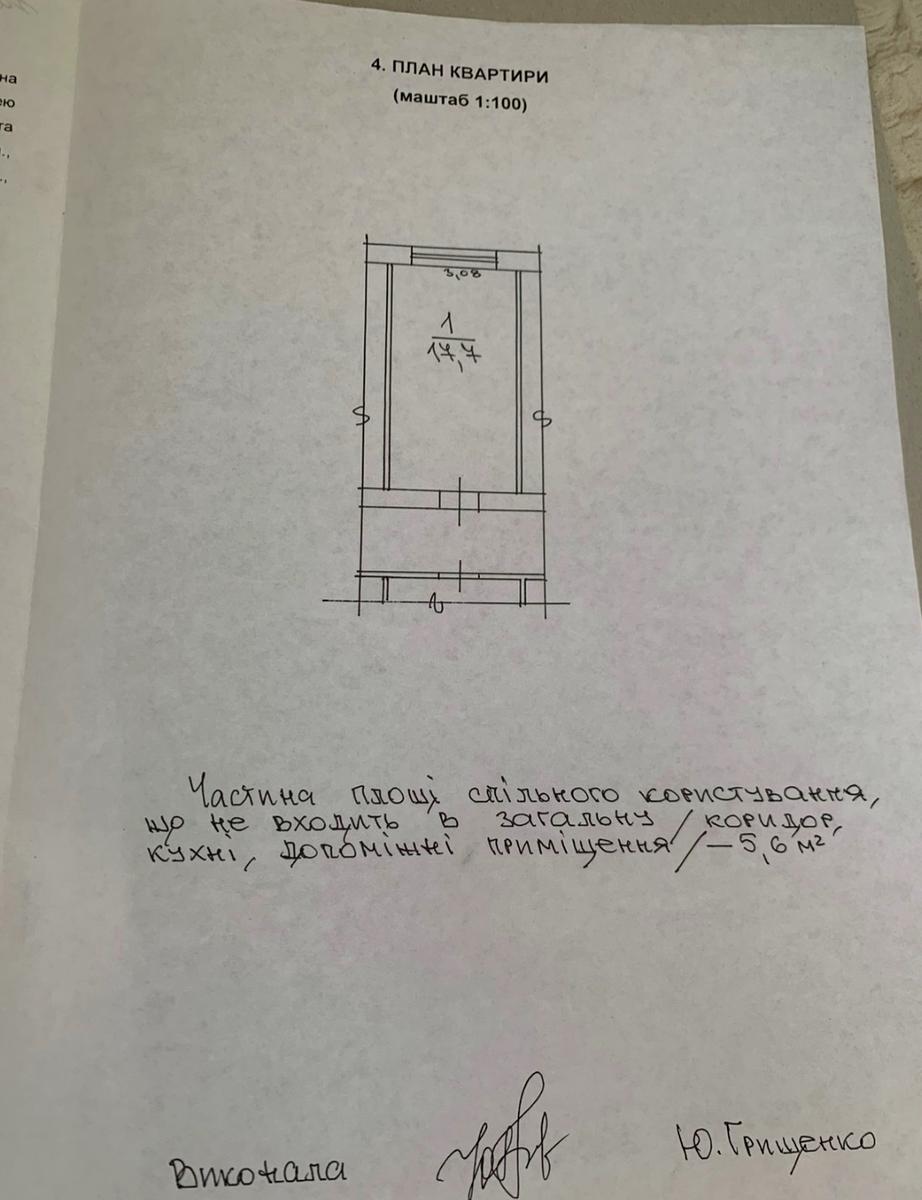 на
ею
та
.,
.,
4. ПЛАН КВАРТИРИ
(маштаб 1:100)
3,08
1
17,7
Частина площі спільного користування,
що не входить в загальну / коридор,
кухні, допоміжні приміщення / – 5,6 м²
Виконала
Ю. Грищенко